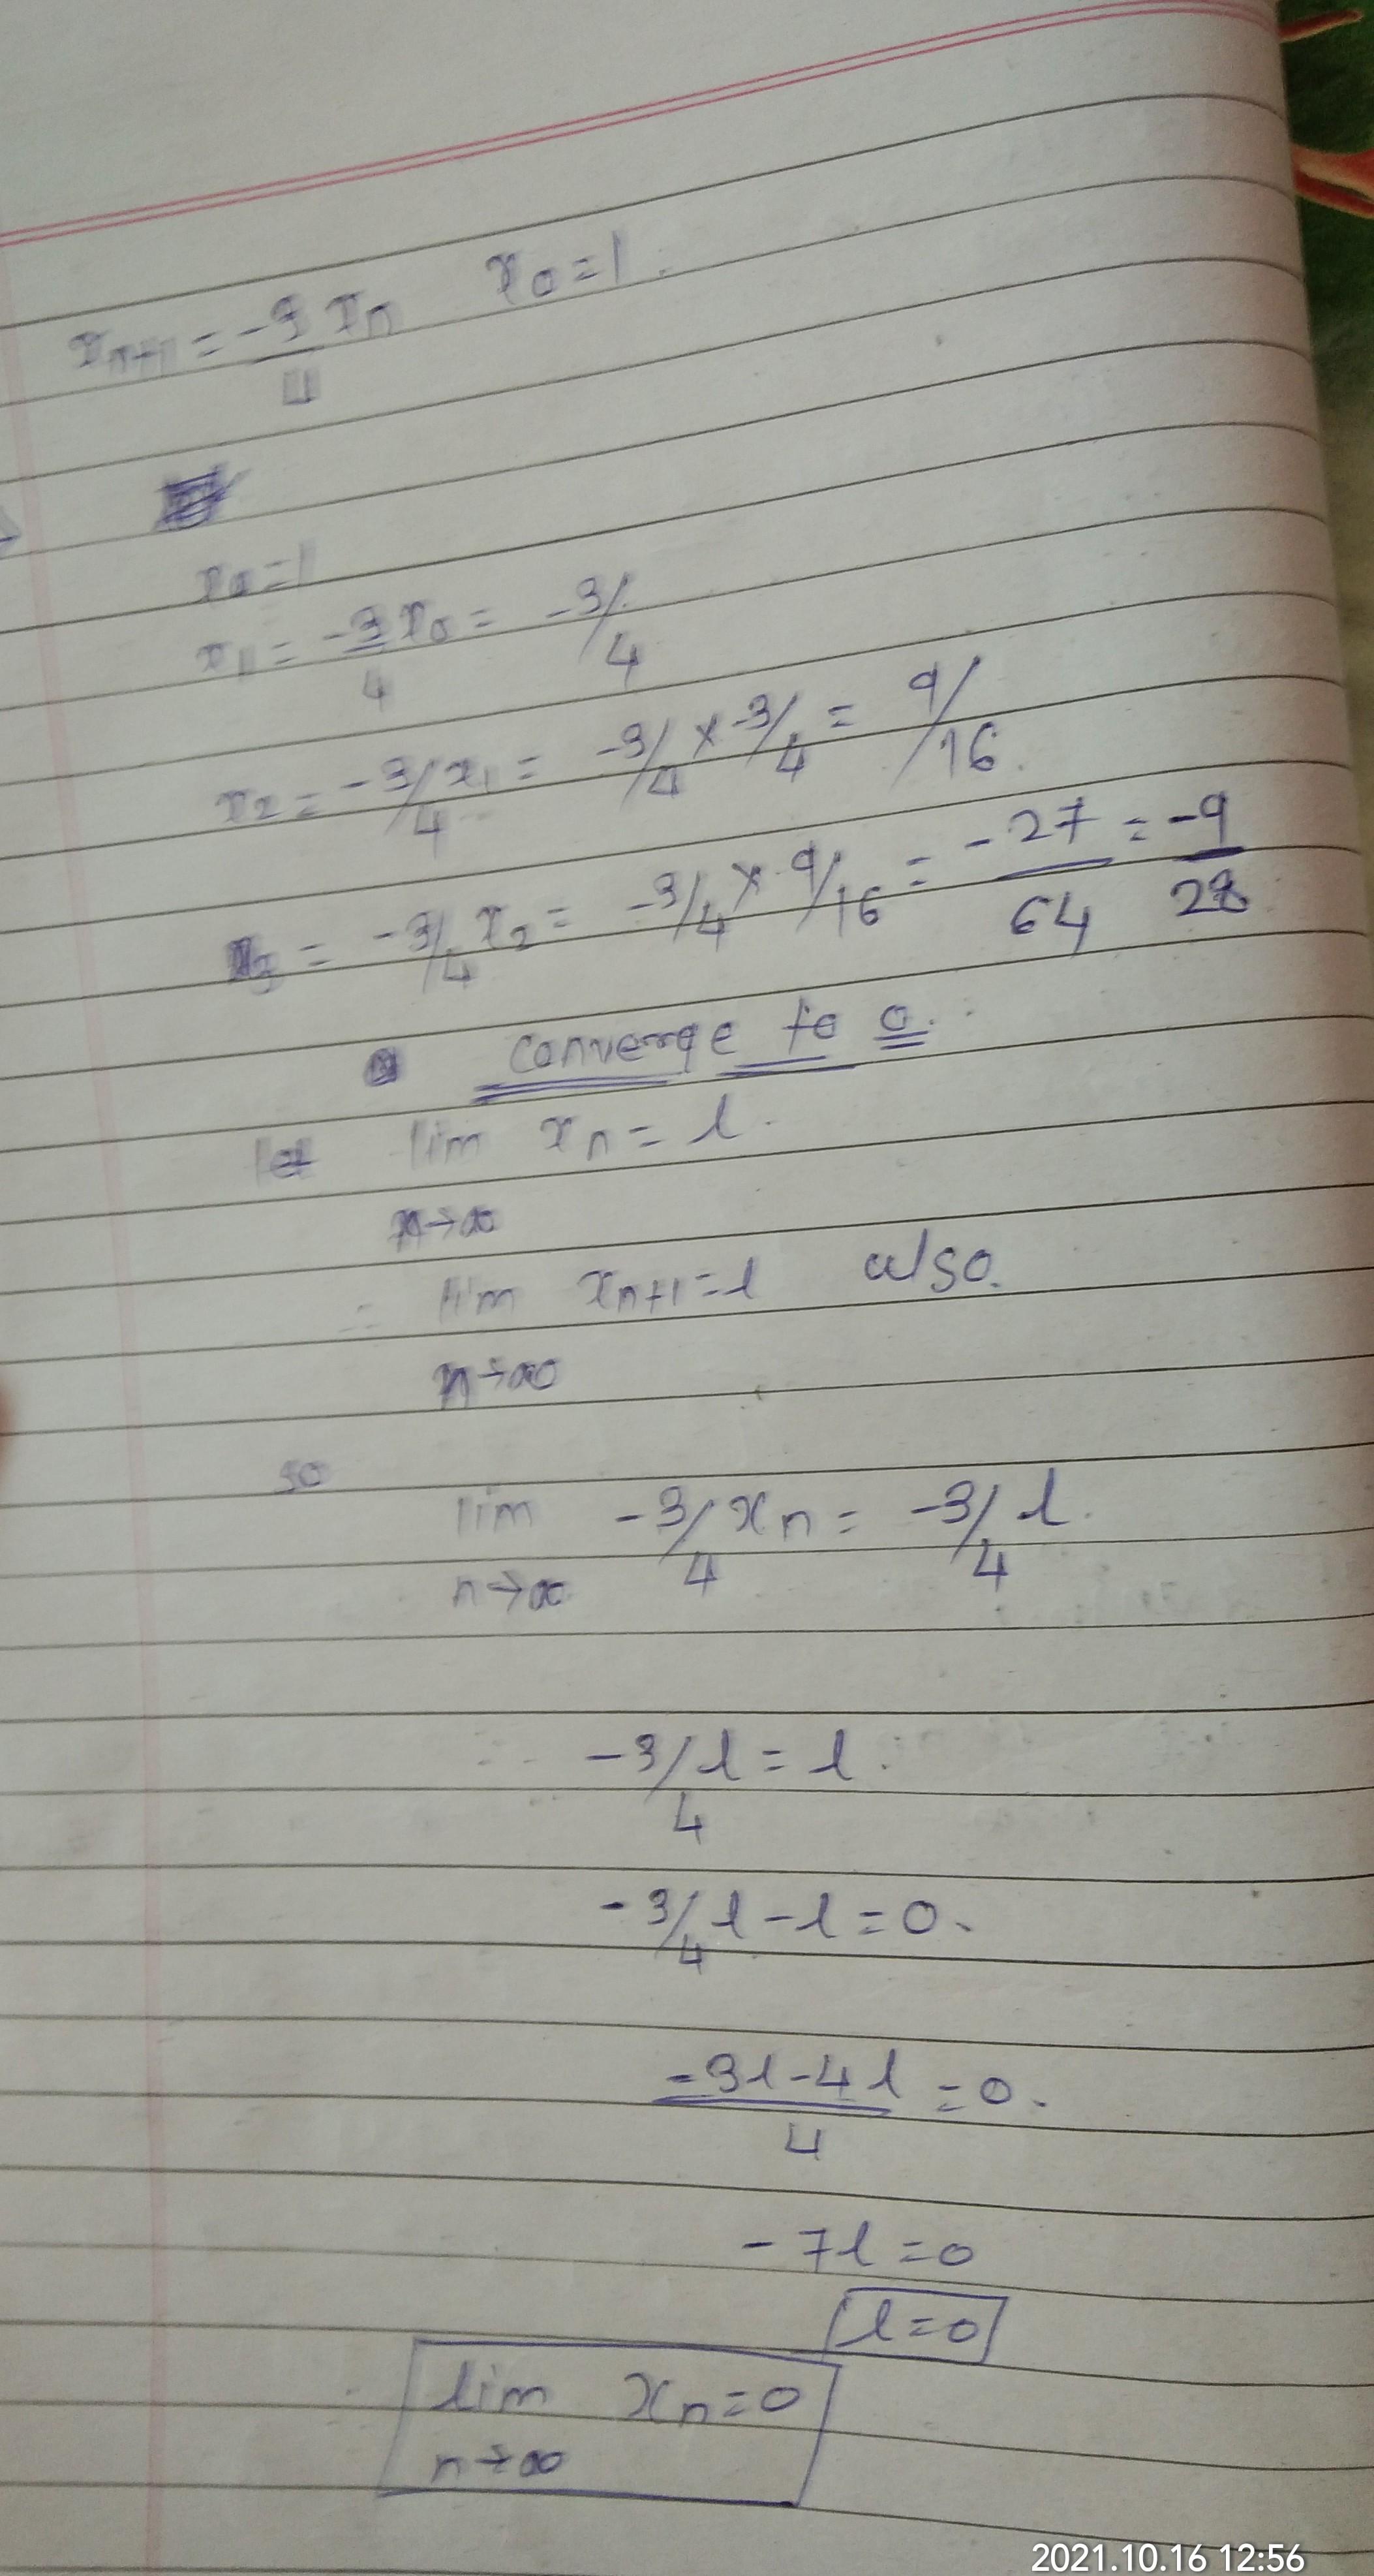 xn+1 = -3/4 xn x0 = 1.
x0 = 1
x1 = -3/4 x0 = -3/4
x2 = -3/4 x1 = -3/4 × -3/4 = 9/16.
x3 = -3/4 x2 = -3/4 × 9/16 = -27/64 = -9/28
converge to 0.
let lim xn = l.
n→∞
∴ lim xn+1 = l also.
n→∞
so
lim -3/4 xn = -3/4 l.
n→∞
∴ -3/4 l = l.
-3/4 l - l = 0.
-3l-4l/4 = 0.
-7l = 0
l = 0
∴ lim xn = 0
n→∞
2021.10.16 12:56